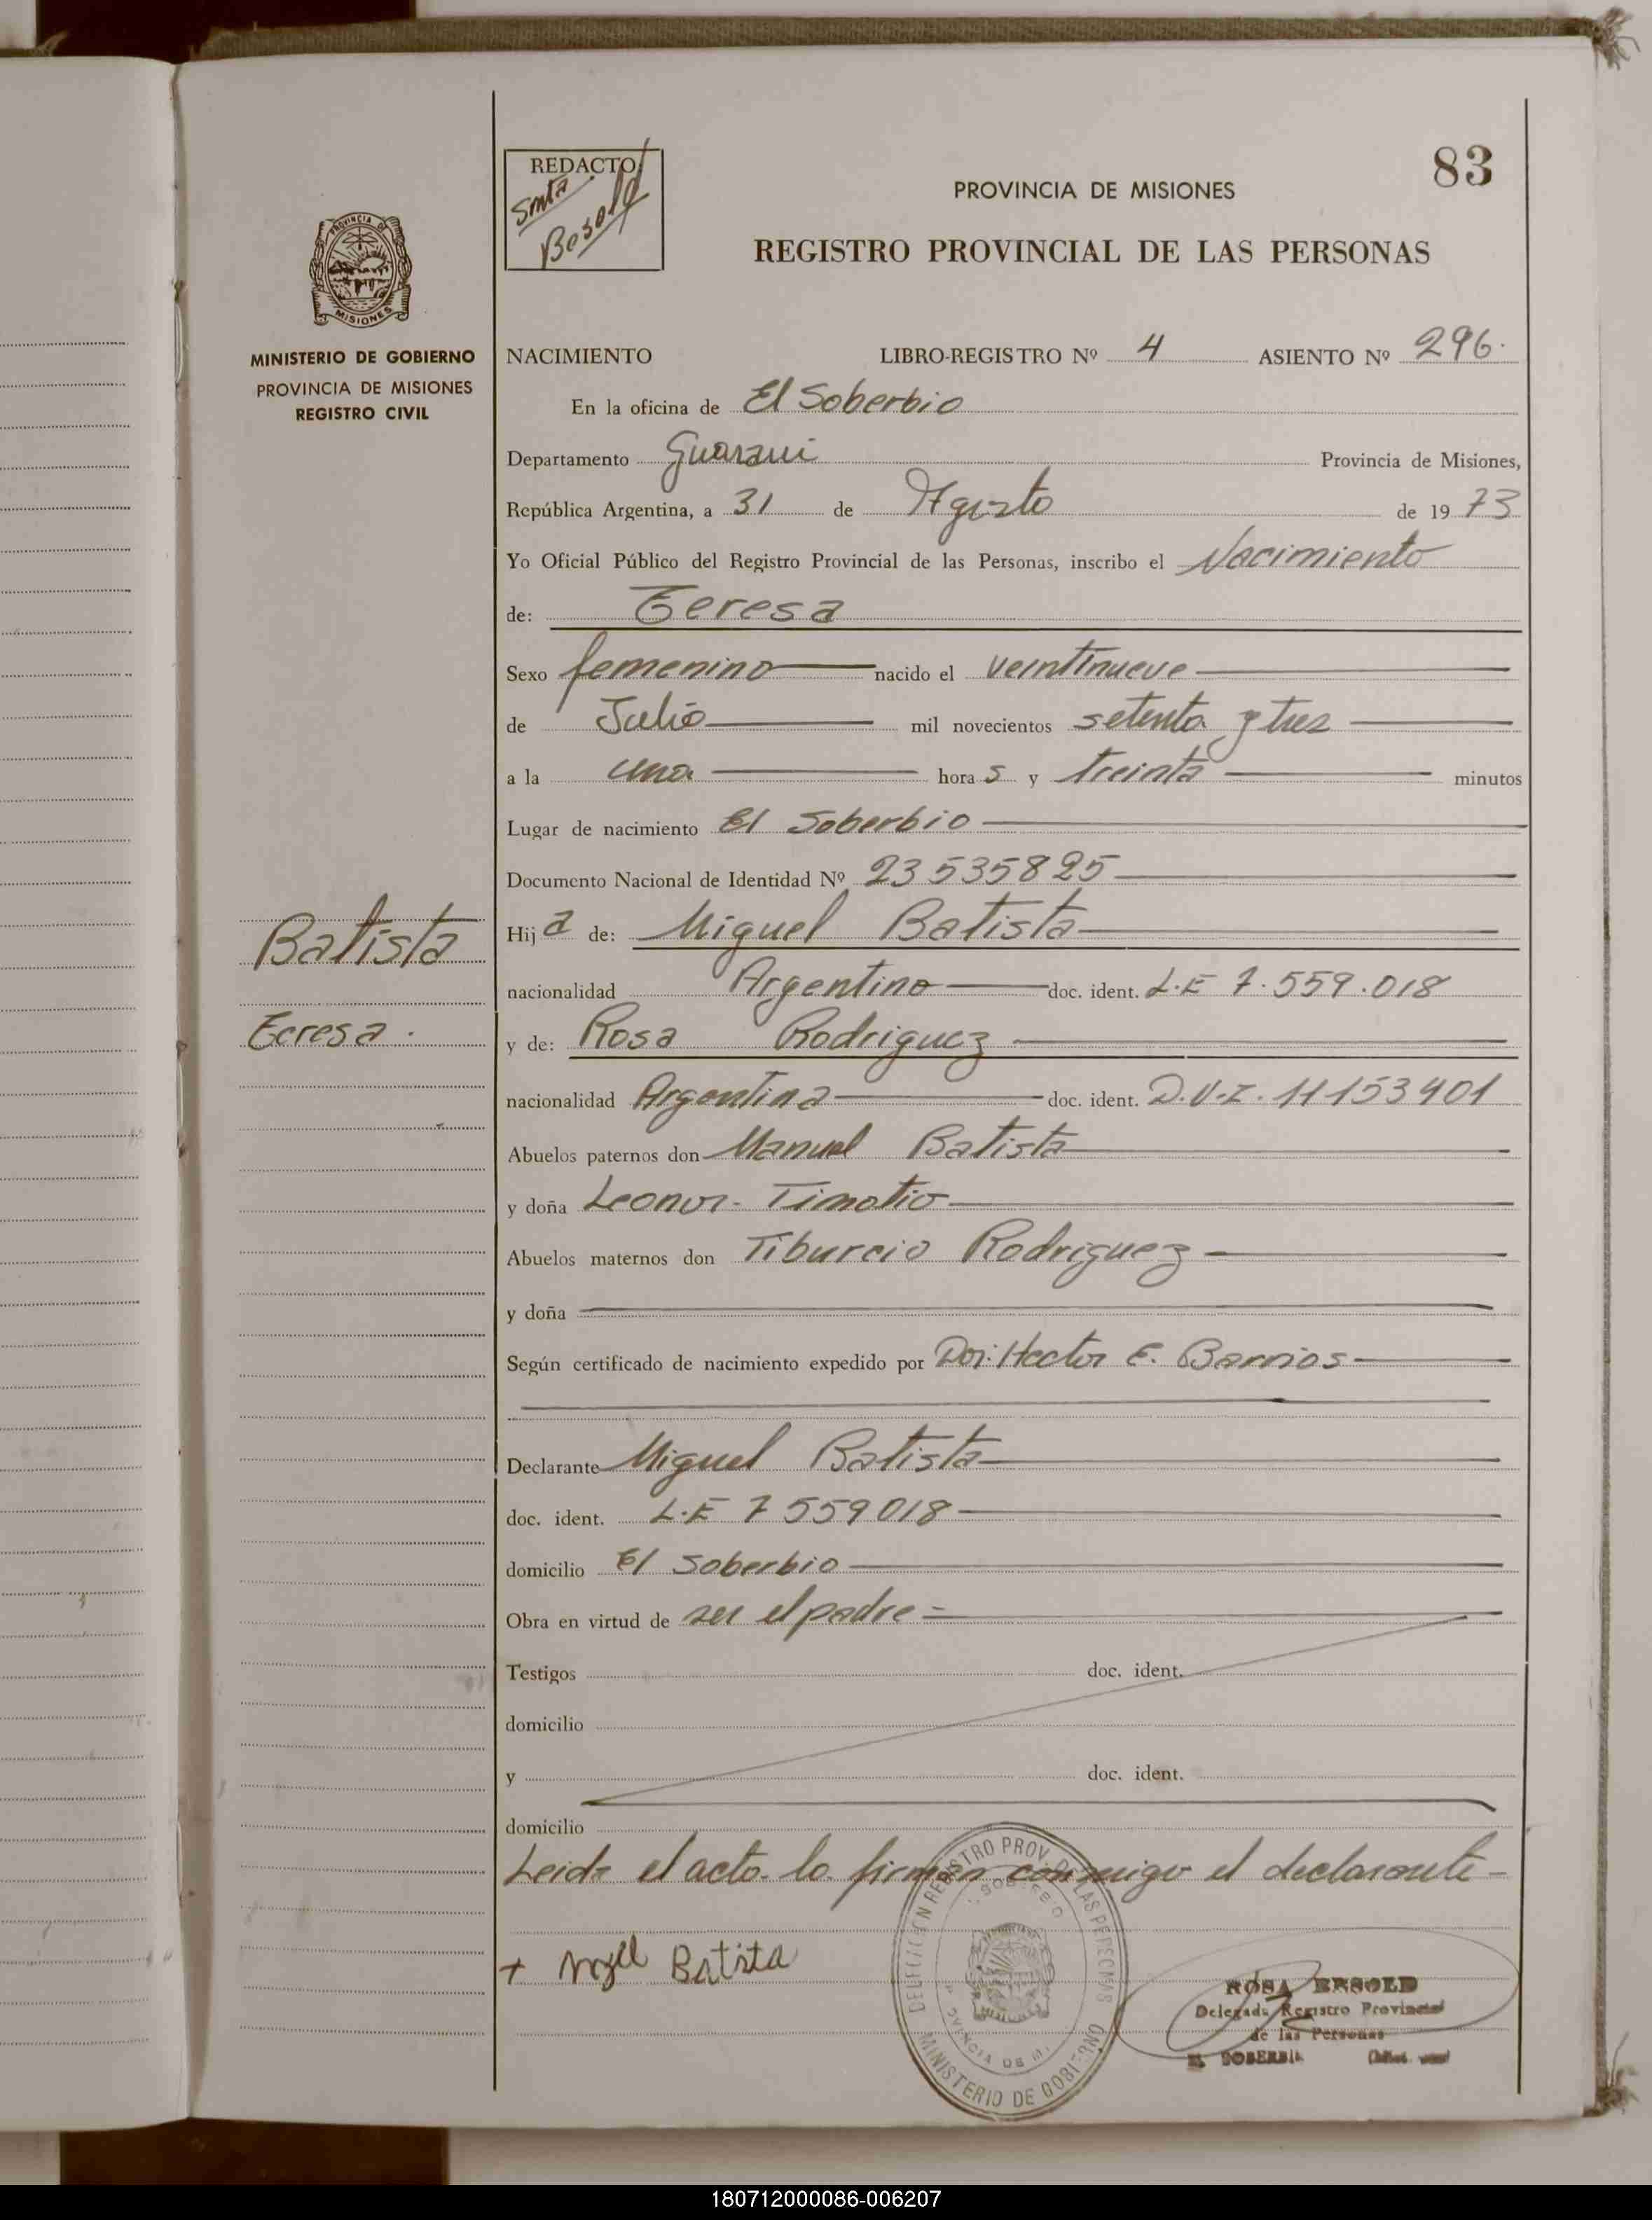 83
REDACTO
Besold
PROVINCIA DE MISIONES
REGISTRO PROVINCIAL DE LAS PERSONAS
PROVINCIA DE
MISIONES
MINISTERIO DE GOBIERNO
PROVINCIA DE MISIONES
REGISTRO CIVIL
NACIMIENTO LIBRO-REGISTRO Nº 4 ASIENTO Nº 296.
En la oficina de El Soberbio
Departamento Guarani Provincia de Misiones,
República Argentina, a 31 de Agosto de 1973
Yo Oficial Público del Registro Provincial de las Personas, inscribo el Nacimiento
de: Teresa
Sexo femenino nacido el veintinueve
de Julio mil novecientos setenta y tres
a la una hora s y treinta minutos
Lugar de nacimiento El Soberbio
Documento Nacional de Identidad Nº 23535825
Batista
Hija de: Miguel Batista
nacionalidad Argentino doc. ident. L.E 7.559.018
Teresa.
y de: Rosa Rodriguez
nacionalidad Argentina doc. ident. 11153401
Abuelos paternos don Manuel Batista
y doña Leonor Timotio
Abuelos maternos don Tiburcio Rodriguez
y doña
Según certificado de nacimiento expedido por Dor: Hector E. Barrios
Declarante Miguel Batista
doc. ident. L.E 7559018
domicilio El Soberbio
Obra en virtud de ser el padre
Testigos doc. ident.
domicilio
y doc. ident.
domicilio
Leida el acto lo firman conmigo el declarante
DELEGACION REGISTRO PROV. DE LAS PERSONAS
MINISTERIO DE GOBIERNO
+ Batista
ROSA BESOLD
Delegada Registro Provincial
de las Personas
EL SOBERBIO
180712000086-006207